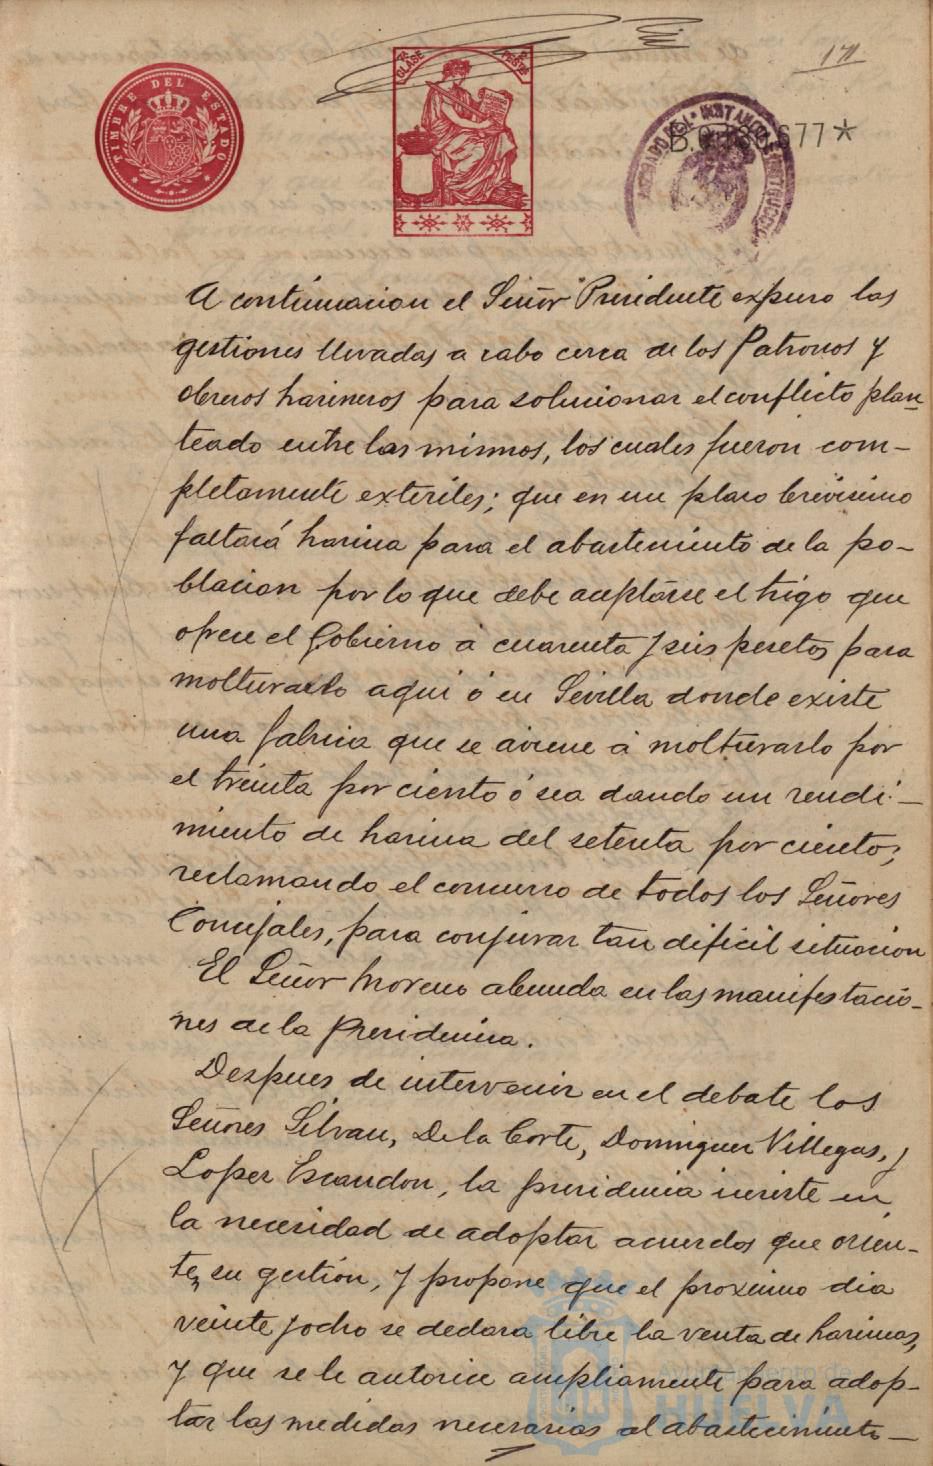 171
TIMBRE DEL ESTADO
CLASE
PESETA
B.0.
677*
A continuacion el Señor Presidente expuso las
gestiones llevadas a cabo cerca de los Patronos y
obreros harineros para solucionar el conflicto plan
teado entre las mismos, los cuales fueron com-
pletamente exteriles; que en un plaso brevisimo
faltará harina para el abastemiento de la po-
blacion por lo que debe aceptarse el trigo que
ofrece el Gobierno á cuarenta y seis pesetas para
molturarlo aqui ó en Sevilla donde existe
una fabrica que se aviene á molturarlo por
el treinta por ciento ó sea dando un rendi-
miento de harina del setenta por ciento;
reclamando el concurso de todos los Señores
Concejales, para conjurar tan dificil situacion
El Señor Moreno abunda en las manifestacio-
nes de la Presidencia.
Despues de intervenir en el debate los
Señores Silvan, De la Corte, Dominguez Villegas, y
Lopez Escandon, la presidencia insiste en
la necesidad de adoptar acuerdos que orien-
ten su gestion, y propone que el proximo dia
veinte y ocho se declara libre la venta de harinas,
y que se le autorice ampliamente para adop-
tar las medidas necesarias al abastecimiento-
Ayuntamiento de
HUELVA